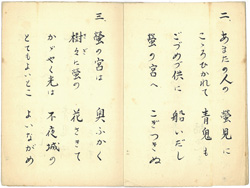 二、あまたの人の 螢見に
こゝろひかれて 青鬼も
こづめ供に 船いだし
螢の宮へ こぎつきぬ
三、螢の宮は 奥ふかく
樹々に螢の 花さきて
かゞやく光は 不夜城の
とてもよいとこ よいながめ